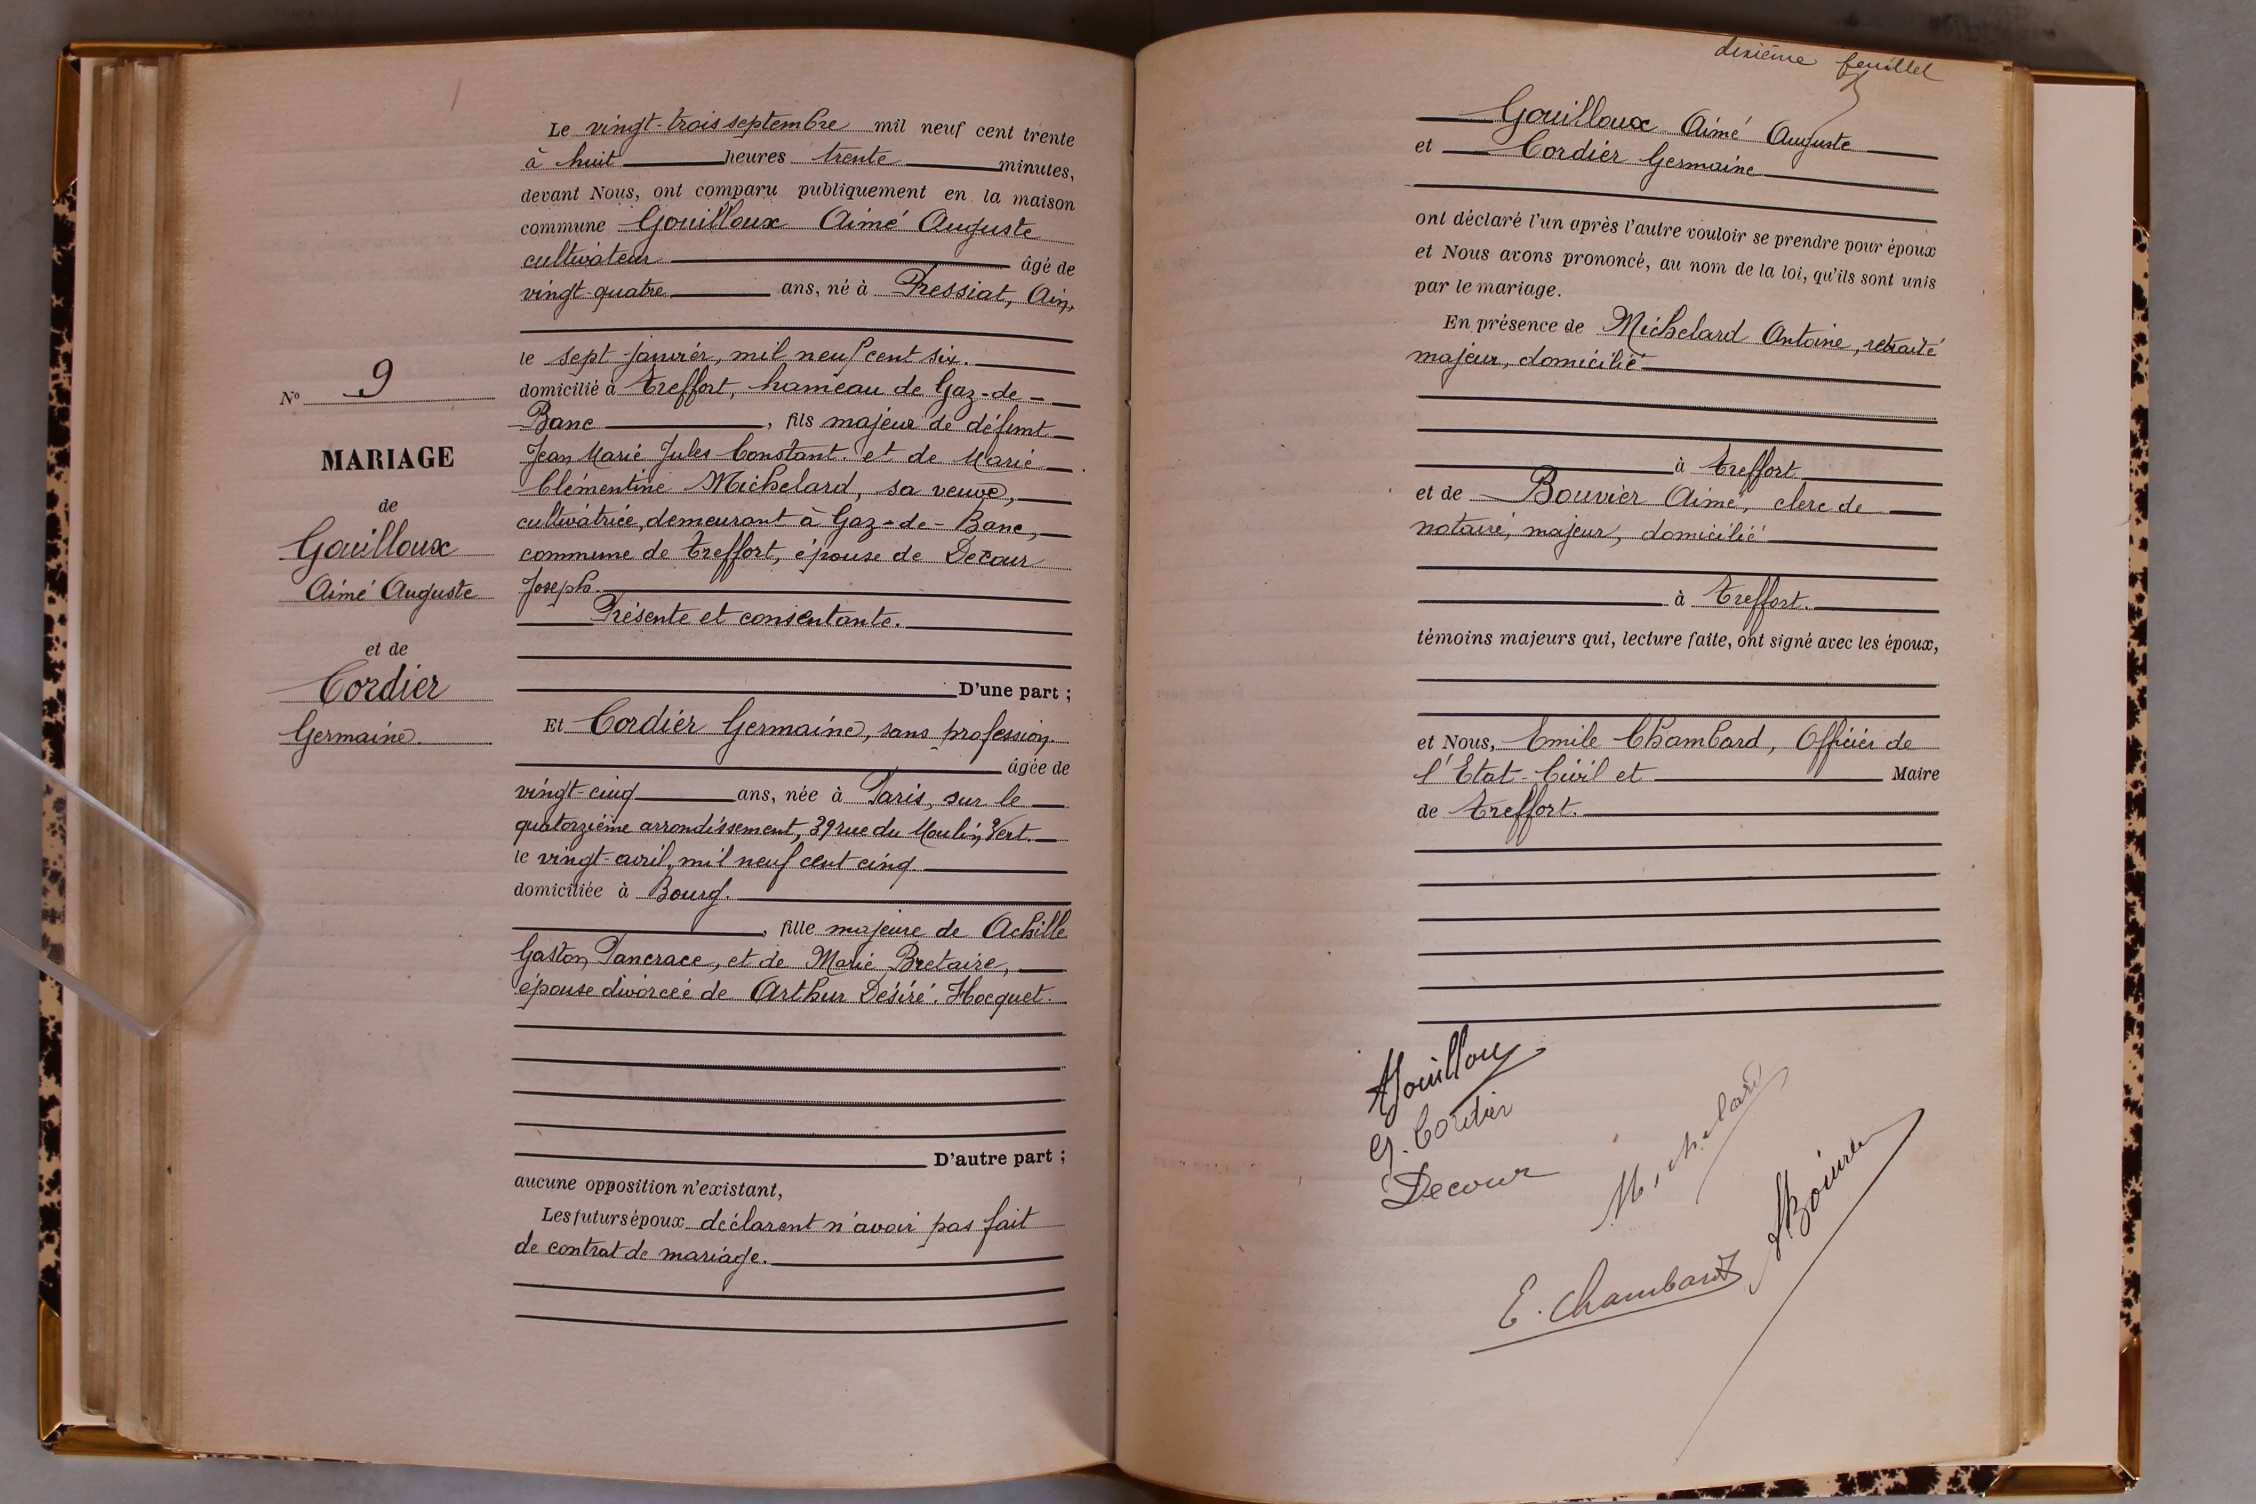 Le vingt-trois septembre mil neuf cent trente
à huit heures trente minutes,
devant Nous, ont comparu publiquement en la maison
commune Gouilloux Aimé Auguste
cultivateur âgé de
vingt-quatre ans, né à Pressiat, Ain,
le sept janvier, mil neuf cent six.
domicilié à Treffort, hameau de Gaz-de-
Banc, fils majeur de défunt
Jean Marie Jules Constant et de Marie
Clémentine Michelard, sa veuve,
cultivatrice, demeurant à Gaz-de-Banc,
commune de Treffort, épouse de Decour
Joseph.
Présente et consentante.
D'une part ;
Et Cordier Germaine, sans profession
âgée de
vingt-cinq ans, née à Paris, sur le
quatorzième arrondissement, 39 rue du Moulin Vert.
le vingt-avril, mil neuf cent cinq
domiciliée à Bourg.
, fille majeure de Achille
Gaston Pancrace, et de Marie Bretaire,
épouse divorcée de Arthur Désiré Hocquet.
D'autre part ;
aucune opposition n'existant,
Les futurs époux déclarent n'avoir pas fait
de contrat de mariage.
N° 9
MARIAGE
de
Gouilloux
Aimé Auguste
et de
Cordier
Germaine.
dixième feuillet
Gouilloux Aimé Auguste
et Cordier Germaine
ont déclaré l'un après l'autre vouloir se prendre pour époux
et Nous avons prononcé, au nom de la loi, qu'ils sont unis
par le mariage.
En présence de Michelard Antoine, retraité
majeur, domicilié
à Treffort
et de Bouvier Aimé, clerc de
notaire, majeur, domicilié
à Treffort.
témoins majeurs qui, lecture faite, ont signé avec les époux,
et Nous, Emile Chambard, Officier de
l'Etat-Civil et Maire
de Treffort.
AGouilloux
G. Cordier
Decour
Michelard
ABouvier
E. Chambard